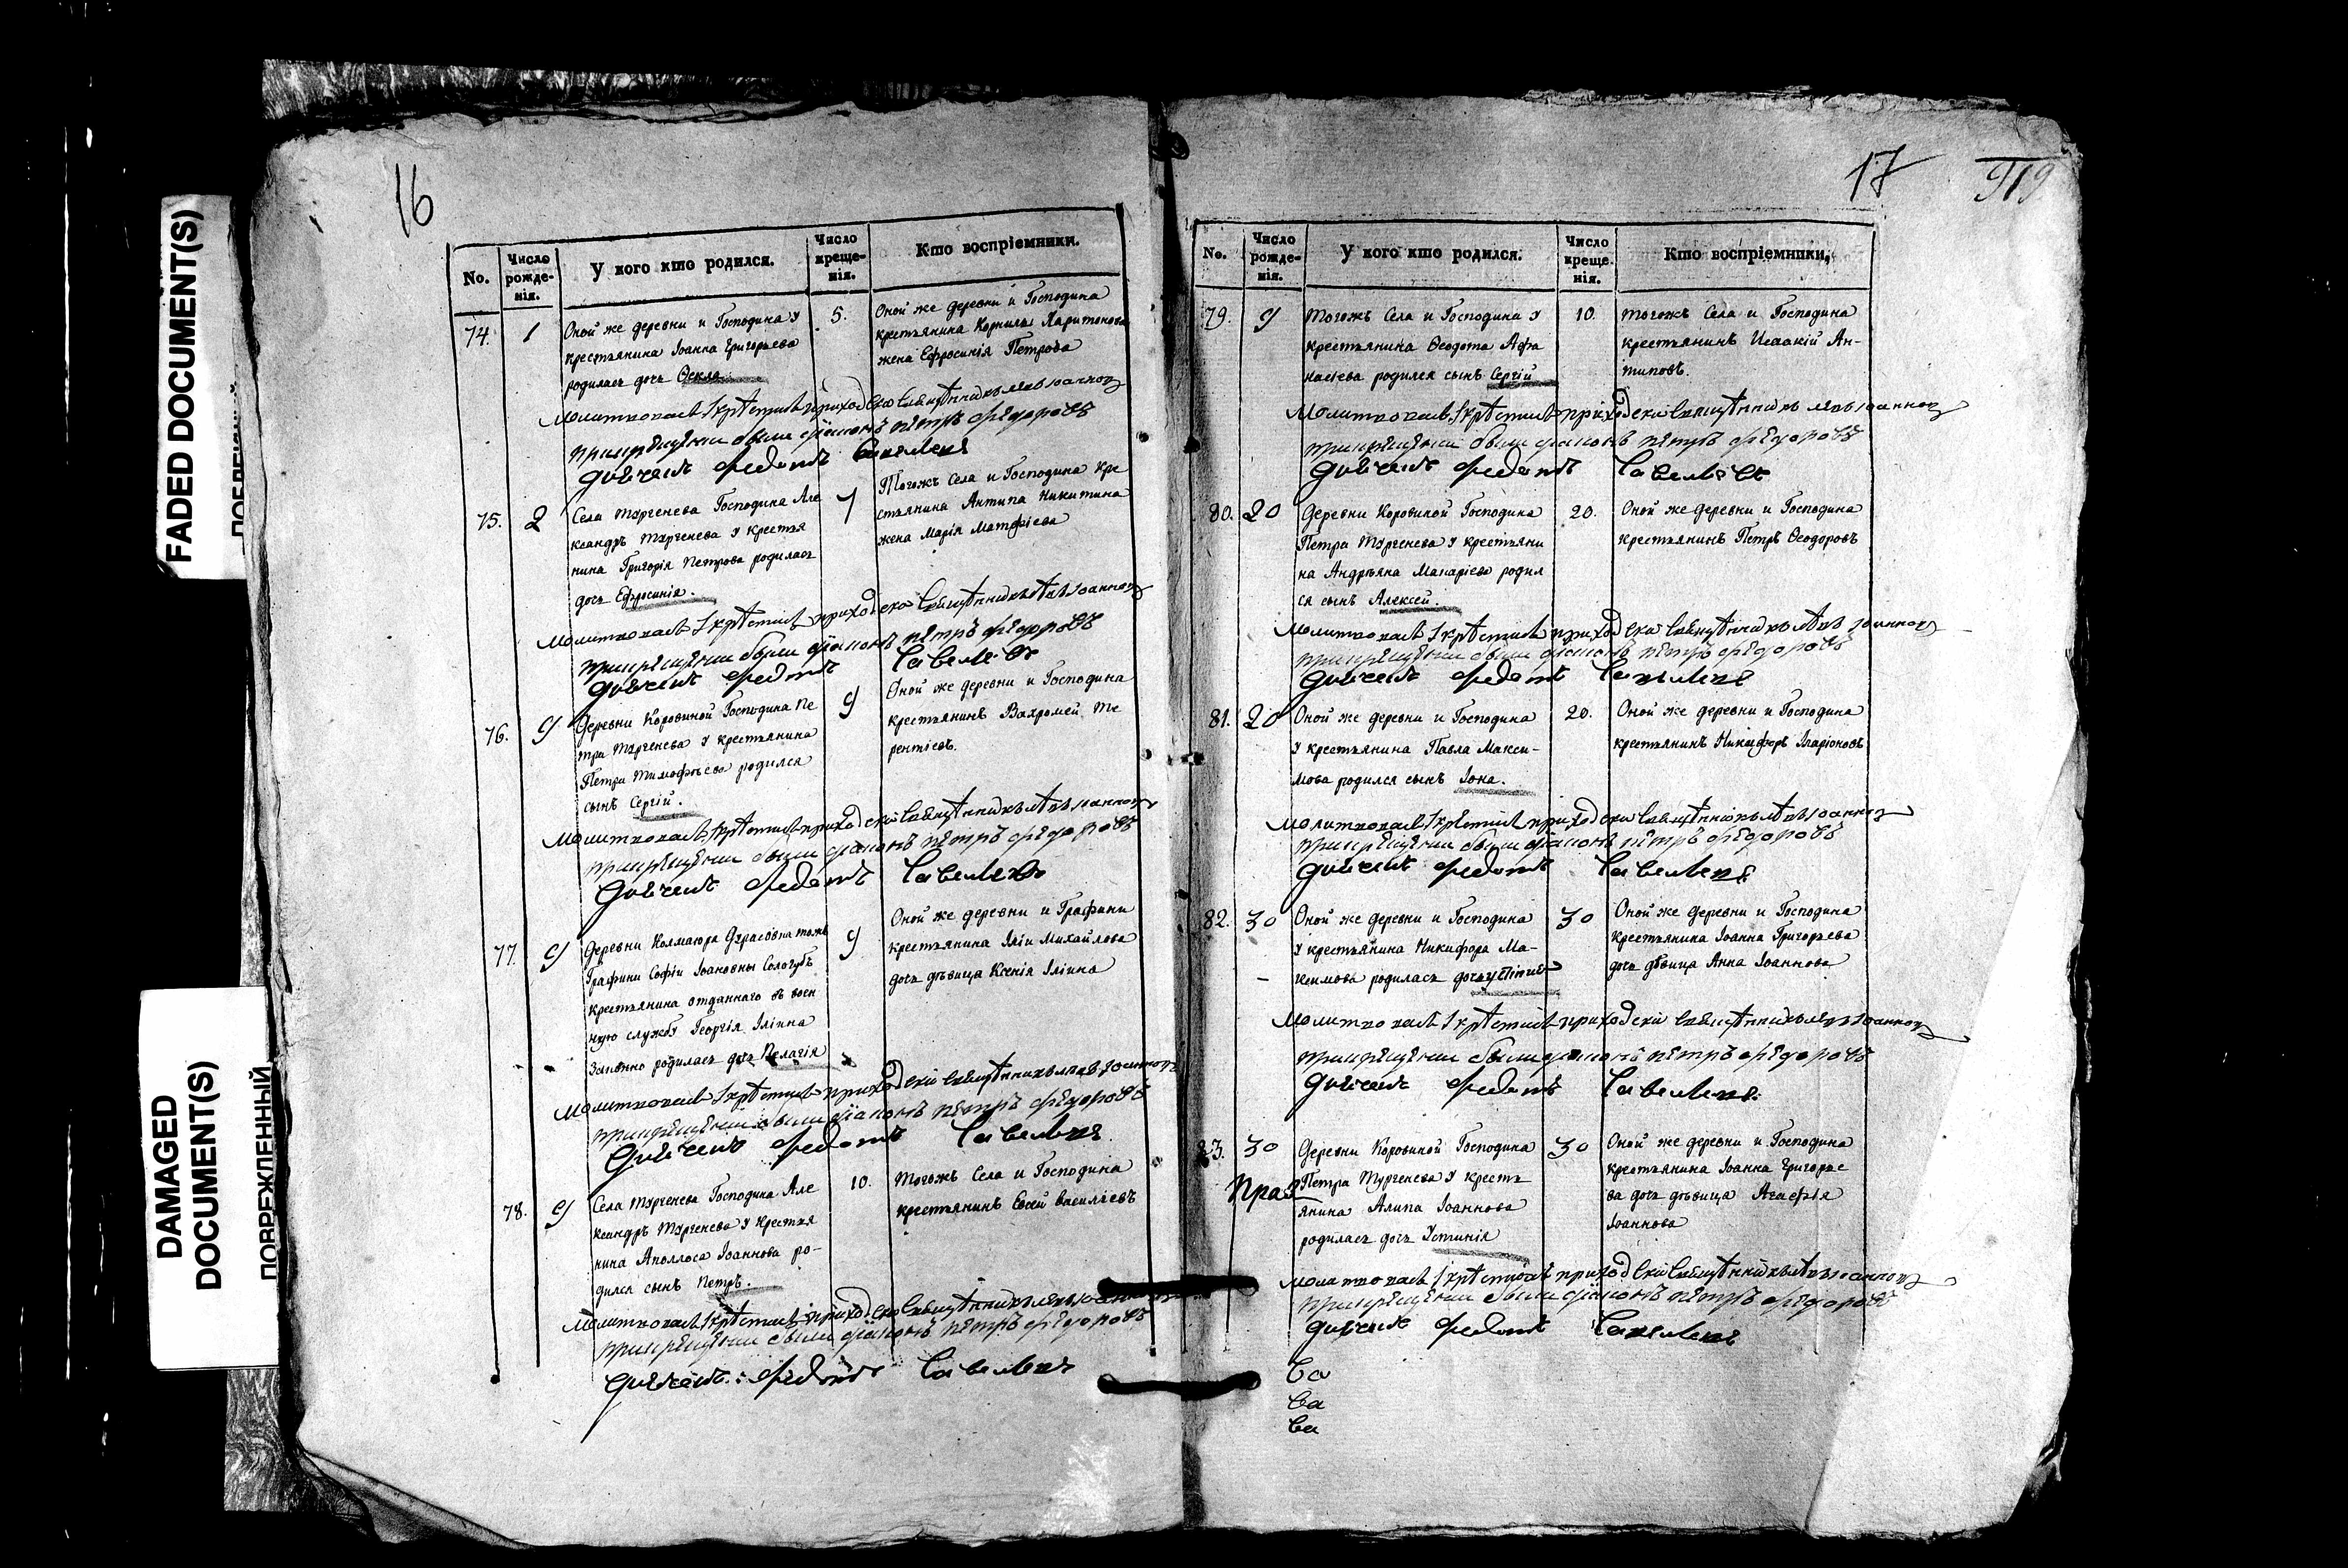 FADED DOCUMENT(S)
DAMAGED
DOCUMENT(S)
ПОВРЕЖДЕННЫЙ
16
No.
Число
рожде-
нія.
У кого кто родился.
Число
креще-
нія.
Кто воспріемники.
74. 1 5.
Оной же деревни и Господина у
крестьянина Іоанна Григорьева
родилась дочь Ѳекла.
Оной же деревни и Господина
крестьянина Корнилы Харитонова
жена Ефросинія Петрова
Молитвовалъ и крѣстилъ приходской священникъ Левъ Іоанновъ
при крещении были дiаконъ пѣтръ фѣдоровъ
дьячекъ Федотъ Савельевъ
75. 2
Села Тургенева Господина Але
ксандръ Тургенева у крестья
нина Григорія Петрова родилась
дочь Ефросинія.
Тогожъ Села и Господина кре
стьянина Антипа Никитина
жена Марія Матфіева
Молитвовалъ и крѣстилъ приходской священникъ Левъ Іоанновъ
при крещении были дiаконъ пѣтръ фѣдоровъ
дьячекъ Федотъ Савельевъ
76. 9 9
Деревни Коровиной Господина Пе
тра Тургенева у крестьянина
Петра Тимофѣева родился
сынъ Сергій.
Оной же деревни и Господина
крестьянинъ Вахромей Те
рентіевъ.
Молитвовалъ и крѣстилъ приходской священникъ Левъ Іоанновъ
при крещении были дiаконъ пѣтръ фѣдоровъ
дьячекъ Федотъ Савельевъ
77. 9 9
Деревни Колмаюра тожъ
Графини Софіи Іоановны Сологубъ
крестьянина отданнаго въ воен
ную службу Георгія Іліина
родилась дочь Пелагія
Оной же деревни и Графини
крестьянина Іліи Михайлова
дочь дѣвица Ксенія Іліина
Молитвовалъ и крѣстилъ приходской священникъ Левъ Іоанновъ
при крещении были дiаконъ пѣтръ фѣдоровъ
дьячекъ Федотъ Савельевъ
78. 9 10.
Села Тургенева Господина Але
ксандръ Тургенева у крестья
нина Аполлоса Іоаннова ро-
дился сынъ Петръ.
Тогожъ Села и Господина
крестьянинъ Евсей Васильевъ
Молитвовалъ и крѣстилъ приходской священникъ Левъ Іоанновъ
при крещении были дiаконъ пѣтръ фѣдоровъ
дьячекъ Федотъ Савельевъ
17
No.
Число
рожде-
нія.
У кого кто родился.
Число
креще-
нія.
Кто воспріемники.
79. 9 10.
Тогожъ Села и Господина у
крестьянина Ѳеодота Афа
насьева родился сынъ Сергій
Тогожъ Села и Господина
крестьянинъ Исаакій Ан-
типовъ.
Молитвовалъ и крѣстилъ приходской священникъ Левъ Іоанновъ
при крещении были дiаконъ пѣтръ фѣдоровъ
дьячекъ Федотъ Савельевъ
80. 20 20.
Деревни Коровиной Господина
Петра Тургенева у крестьяни
на Андреяна Макаріева родил
ся сынъ Алексей.
Оной же деревни и Господина
крестьянинъ Петръ Ѳеодоровъ
Молитвовалъ и крѣстилъ приходской священникъ Левъ Іоанновъ
при крещении были дiаконъ пѣтръ фѣдоровъ
дьячекъ Федотъ Савельевъ
81. 20 20.
Оной же деревни и Господина
у крестьянина Павла Макси-
мова родился сынъ Іона.
Оной же деревни и Господина
крестьянинъ Никифоръ Іларіоновъ
Молитвовалъ и крѣстилъ приходской священникъ Левъ Іоанновъ
при крещении были дiаконъ пѣтръ фѣдоровъ
дьячекъ Федотъ Савельевъ
82. 30 30
Оной же деревни и Господина
у крестьянина Никифора Ма-
ксимова родилась дочь
Оной же деревни и Господина
крестьянина Іоанна Григорьева
дочь дѣвица Анна Іоаннова
Молитвовалъ и крѣстилъ приходской священникъ Левъ Іоанновъ
при крещении были дiаконъ пѣтръ фѣдоровъ
дьячекъ Федотъ Савельевъ
83. 30 30
Деревни Коровиной Господина
Петра Тургенева у кресть
янина Алипа Іоаннова
родилась дочь Устинія
Оной же деревни и Господина
крестьянина Іоанна Григорье
ва дочь дѣвица Агафія
Іоаннова
Молитвовалъ и крѣстилъ приходской священникъ Левъ Іоанновъ
при крещении были дiаконъ пѣтръ фѣдоровъ
дьячекъ Федотъ Савельевъ
Са
Са
Са